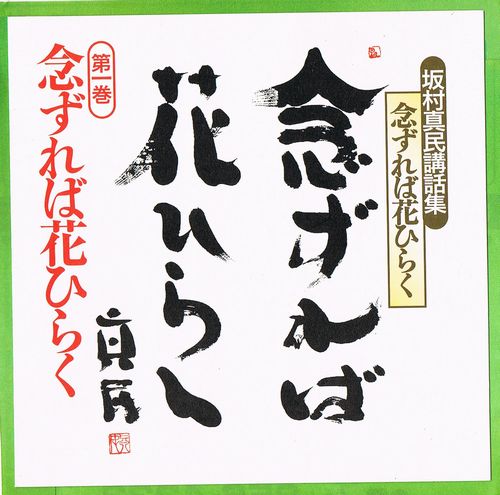 坂村真民講話集
念ずれば花ひらく
念ずれば
花ひらく
真民
第一巻
念ずれば花ひらく